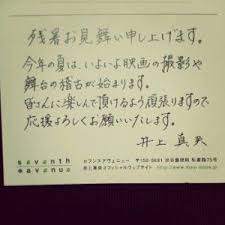 残暑お見舞い申し上げます。
今年の夏は、いよいよ映画の撮影や
舞台の稽古が始まります。
皆さんに楽しんで頂けるよう頑張りますので
応援よろしくお願いいたします。
井上 真央
seventh
avenue
セブンスアヴェニュー 〒150-8681 渋谷郵便局 私書箱75号
井上真央オフィシャルウェブサイト